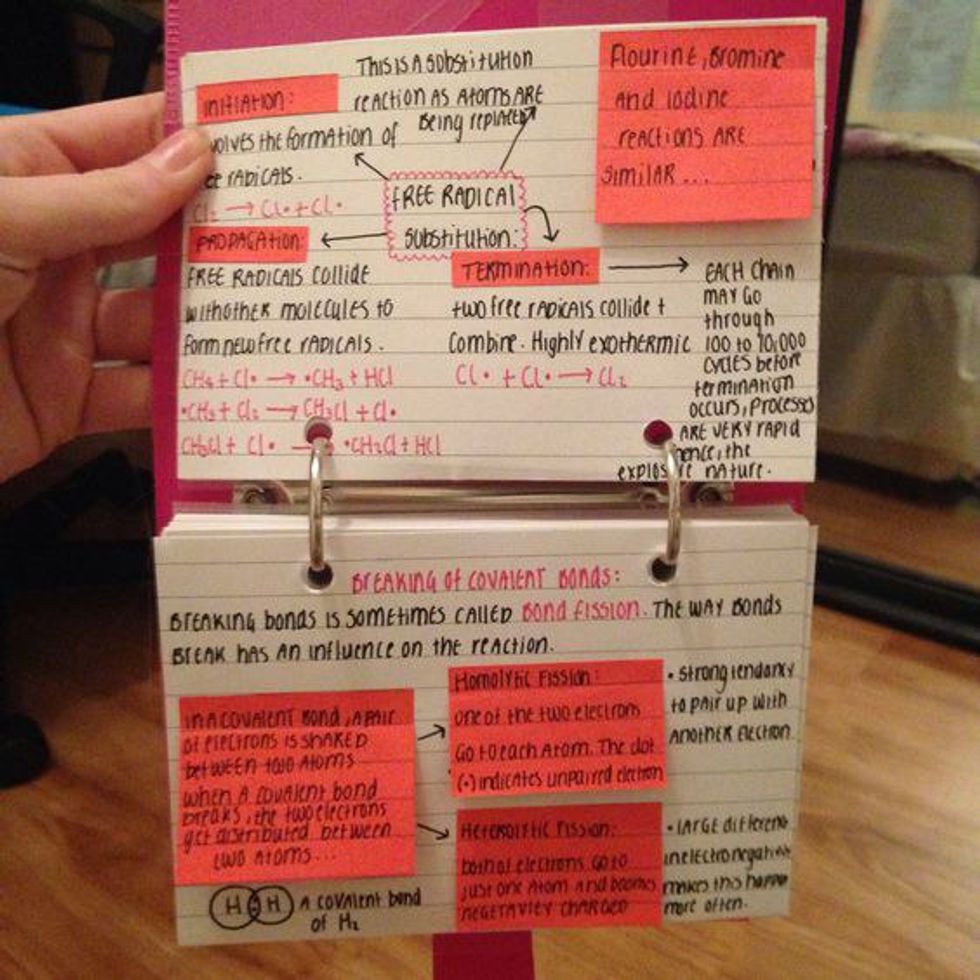 This is a substitution
reaction as atoms are
being replaced
Initiation:
volves the formation of
ee radicals.
Cl₂ → Cl• + Cl•
Flourine, Bromine
and Iodine
reactions are
similar...
Free Radical
Substitution:
Propagation:
Free radicals collide
with other molecules to
form new free radicals.
CH₄ + Cl• → •CH₃ + HCl
•CH₃ + Cl₂ → CH₃Cl + Cl•
CH₃Cl + Cl• → •CH₂Cl + HCl
Termination:
two free radicals collide +
combine. Highly exothermic
Cl• + Cl• → Cl₂
Each chain
may go
through
100 to 10,000
cycles before
termination
occurs, processes
are very rapid
hence, the
explosive nature.
Breaking of covalent bonds:
Breaking bonds is sometimes called Bond fission. The way bonds
break has an influence on the reaction.
In a covalent bond, a pair
of electrons is shared
between two atoms
when a covalent bond
breaks, the two electrons
get distributed between
two atoms...
H H A covalent bond
of H₂
Homolytic Fission:
one of the two electrons
go to each atom. The dot
(•) indicates unpaired electron
• strong tendancy
to pair up with
another electron
Heterolytic Fission:
both of electrons go to
just one atom and becomes
negetavley charged
• large different
in electronegativit
makes this happen
more often.